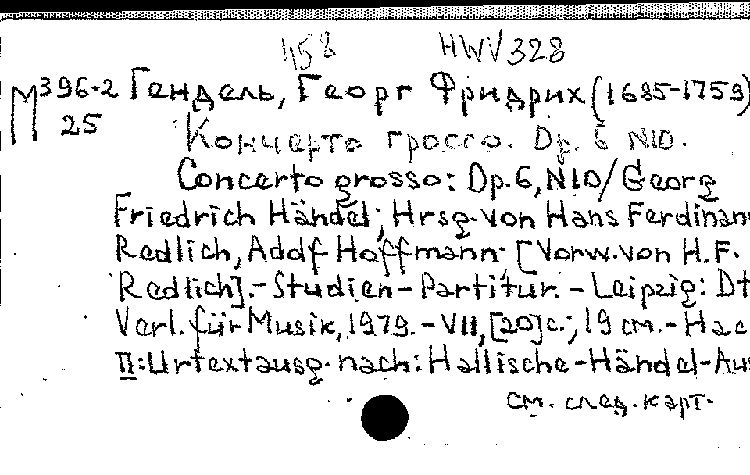 458 HWV 328
М 396-2 Гендель, Георг Фридрих (1685-1759)
25 Кончерто гроссо. Op. 6 N10.
Concerto grosso: Op.6, N10/Georg
Friedrich Händel; Hrsg. von Hans Ferdinan
Redlich, Adolf Hoffmann. [Vorw. von H.F.
Redlich]. - Studien-Partitur. - Leipzig: Dt
Verl. für Musik, 1979. - VII, [20] c.; 19 см. - Нас
п: Urtextausg. nach: Hallische-Händel-Aus
см. след. карт.